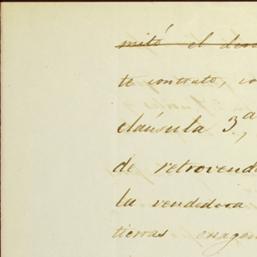 mitó el dere
te contrato, co
cláusula 3ª,
de retrovend
la vendedora
tierras enagen